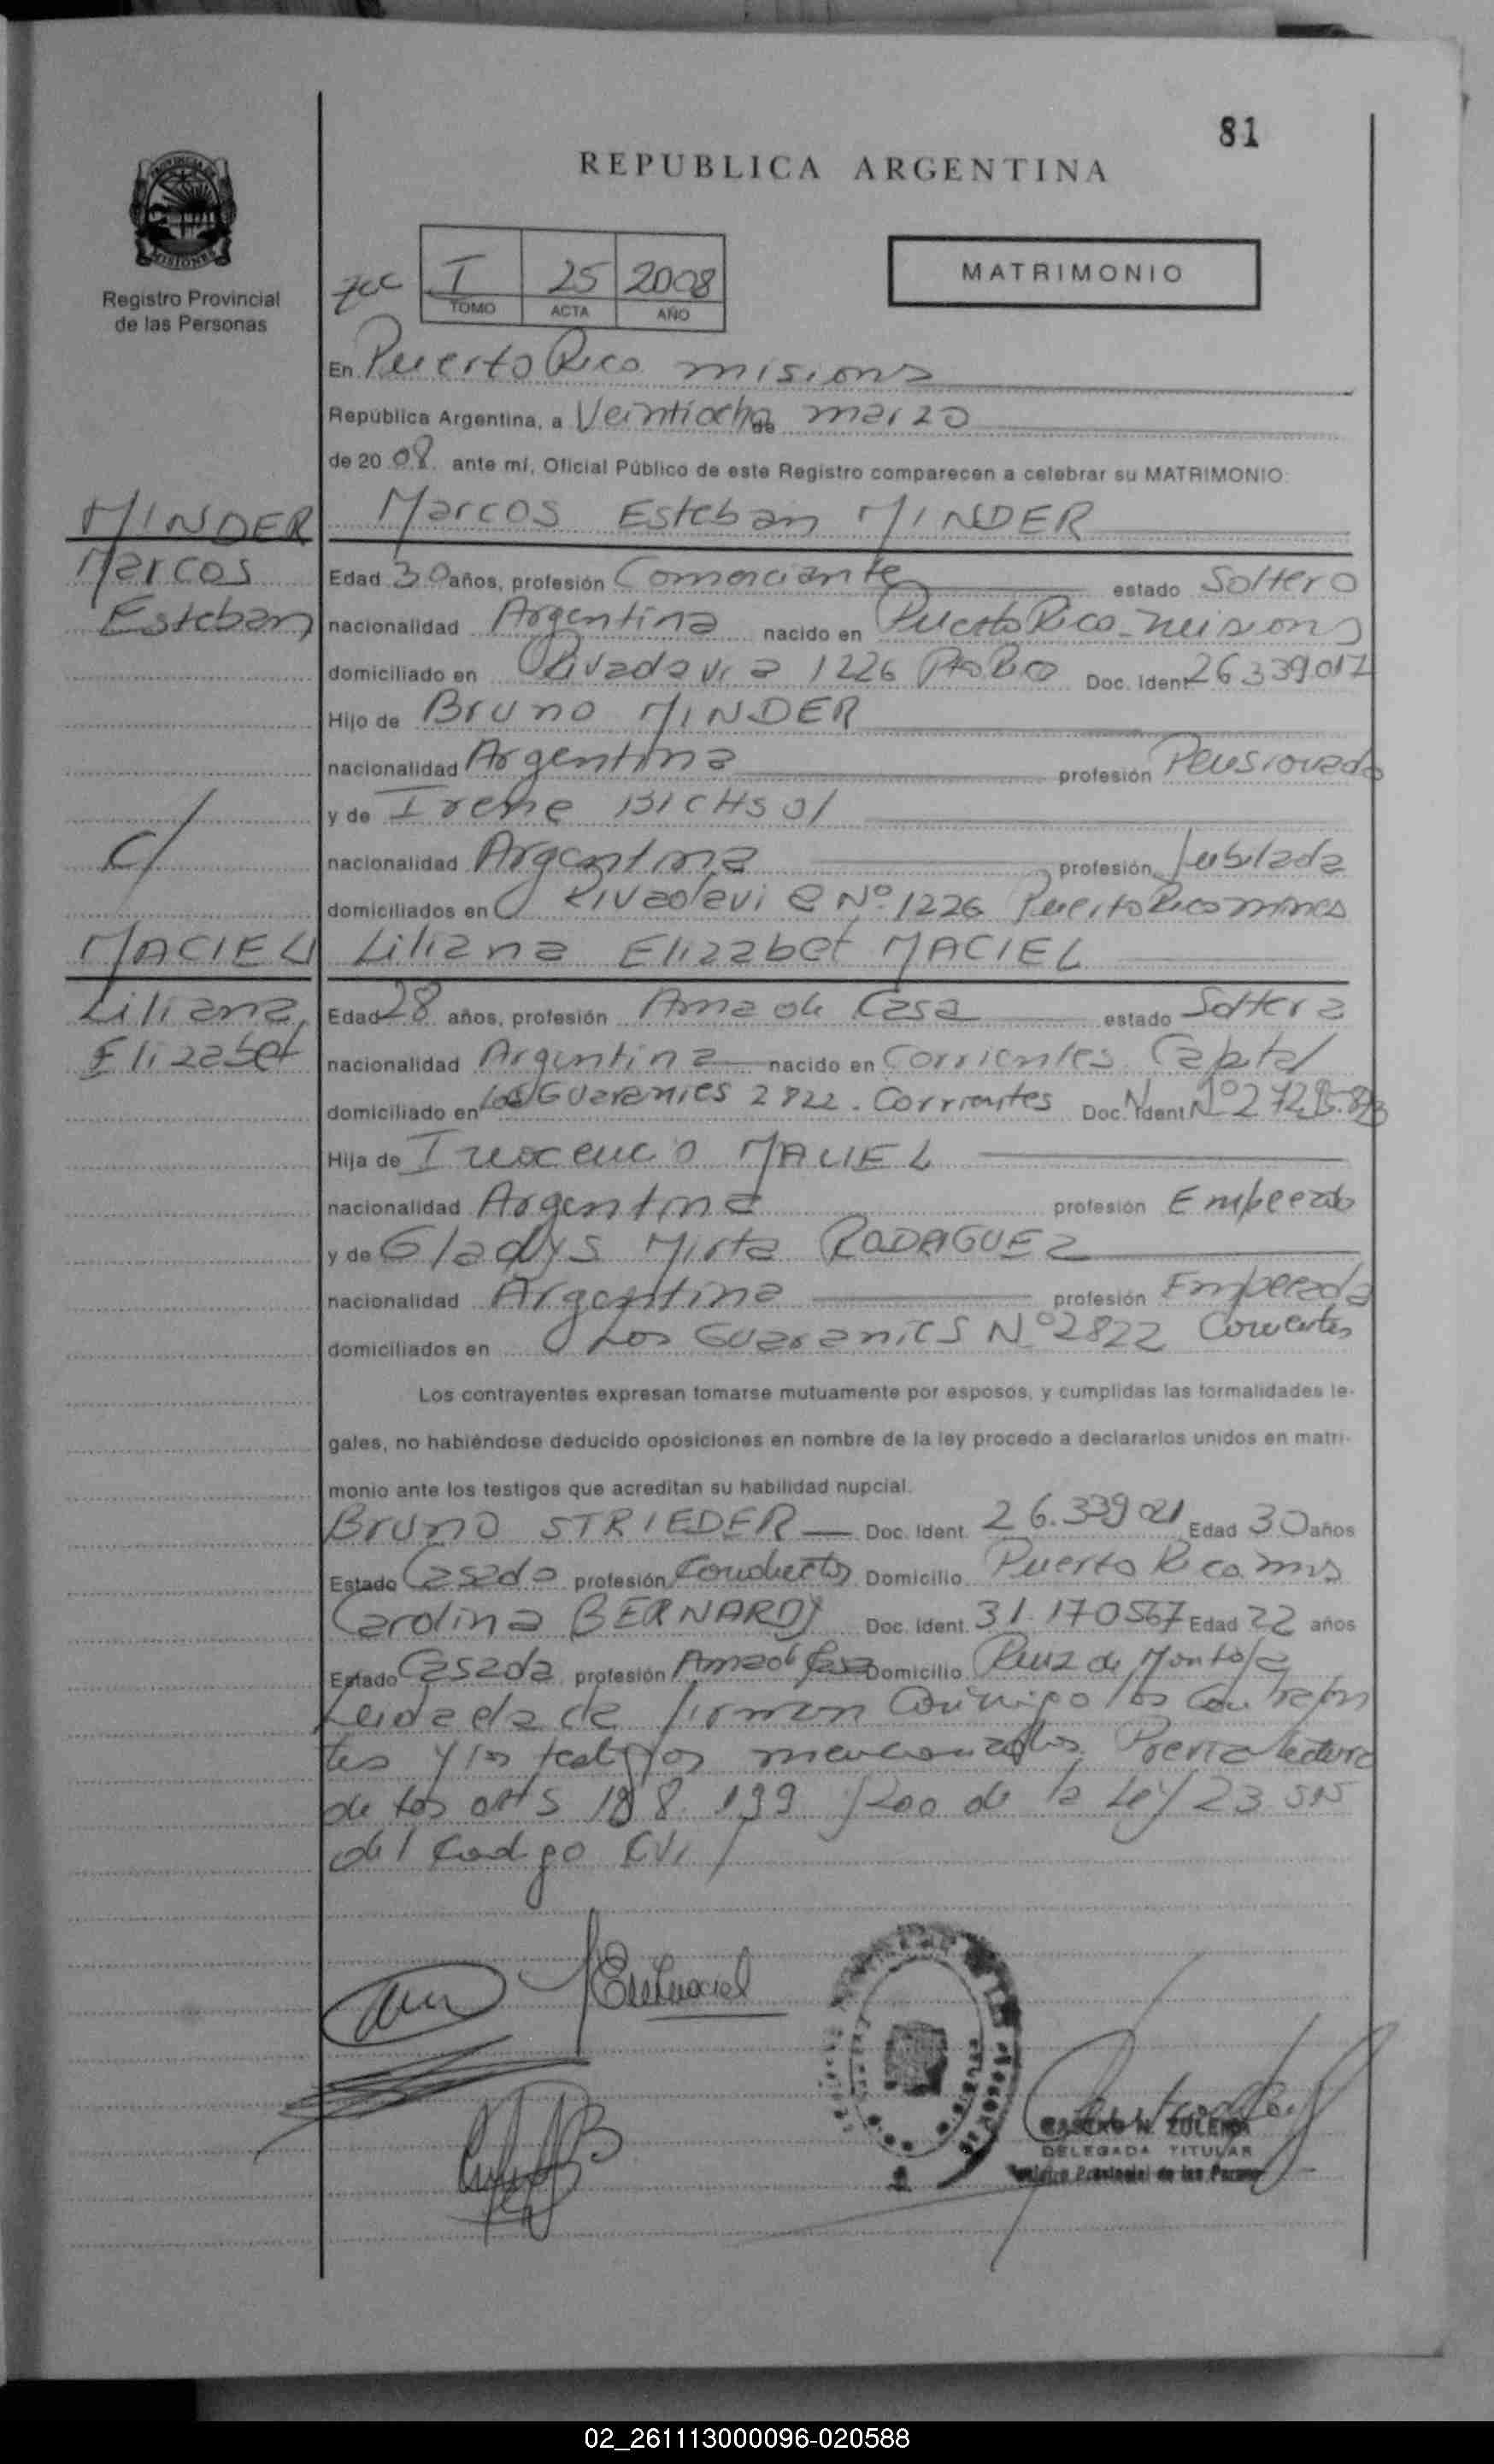 81
REPUBLICA ARGENTINA
PROVINCIA DE
MISIONES
Registro Provincial
de las Personas
I 25 2008
TOMO ACTA AÑO
MATRIMONIO
En Puerto Rico misions
República Argentina, a Veintiocho de marzo
de 20 08 ante mí, Oficial Público de este Registro comparecen a celebrar su MATRIMONIO:
MINDER Marcos Esteban MINDER
Marcos Edad 30 años, profesión Comerciante estado Soltero
Esteban nacionalidad Argentina nacido en Puerto Rico
domiciliado en Rivadavia 1226 Pto Rico Doc. Ident 26339017
Hijo de Bruno MINDER
nacionalidad Argentina profesión Pensionado
y de Irene
C/ nacionalidad Argentina profesión Jubilada
domiciliados en Rivadavia Nº 1226 Puerto Rico
MACIEL Liliana Elizabet MACIEL
Liliana Edad 28 años, profesión Ama de Casa estado Soltera
Elizabet nacionalidad Argentina nacido en Corrientes Capital
domiciliado en Los Guaranies 2822. Corrientes Doc. Ident Nº
Hija de Inocencio MACIEL
nacionalidad Argentina profesión
y de Gladys Mirta RODRIGUEZ
nacionalidad Argentina profesión
domiciliados en Los Guaranies Nº 2822 Corrientes
Los contrayentes expresan tomarse mutuamente por esposos, y cumplidas las formalidades le-
gales, no habiéndose deducido oposiciones en nombre de la ley procedo a declararlos unidos en matri-
monio ante los testigos que acreditan su habilidad nupcial.
Bruno STRIEDER Doc. Ident. 26.339021 Edad 30 años
Estado Casado profesión Conductor Domicilio Puerto Rico mns
Carolina BERNARDY Doc. Ident. 31.170567 Edad 22 años
Estado Casada profesión Ama de Casa Domicilio Ruiz de Montoya
Leida firman Conmigo los Contrayen
tes y los testigos mencionados, Previa lectura
de los arts 198 199 y 200 de la Ley 23.515
del Codigo Civil
DELEGADA TITULAR
Registro Provincial de las Personas
02_261113000096-020588